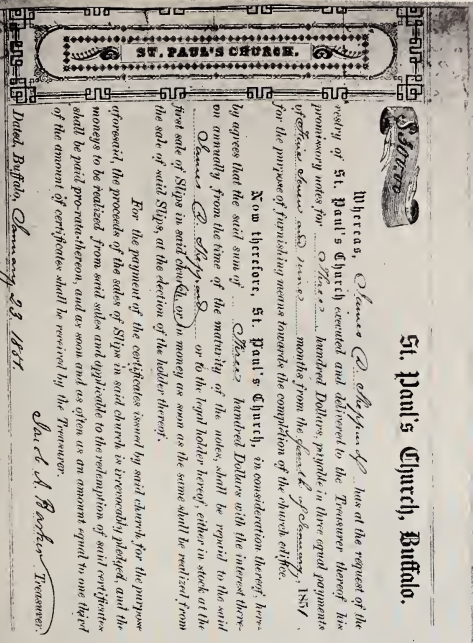 St. Paul's Church, Buffalo.
$300.00
Whereas, James D. Sheppard has at the request of the
vestry of St. Paul's Church executed and delivered to the Treasurer thereof his
promissory notes for Three hundred Dollars, payable in three equal payments
of three seven and nine months from the fourth of January, 1851
for the purpose of furnishing means towards the completion of the church edifice.
Now therefore, St. Paul's Church, in consideration thereof, here-
by agrees that the said sum of Three hundred Dollars with the interest there-
on annually from the time of the maturity of the notes, shall be repaid to the said
James D. Sheppard or to the legal holder hereof, either in stock at the
first sale of Slips in said church, or in money as soon as the same shall be realized from
the sale of said Slips, at the election of the holder thereof.
For the payment of the certificates issued by said church for the purpose
aforesaid, the proceeds of the sales of Slips in said church is irrevocably pledged, and the
moneys to be realized from said sales and applicable to the redemption of said certificates
shall be paid pro-rata thereon, and as soon and as often as an amount equal to one third
of the amount of certificates shall be received by the Treasurer.
Dated, Buffalo, January 23 1851.
Treasurer.
ST. PAUL'S CHURCH.